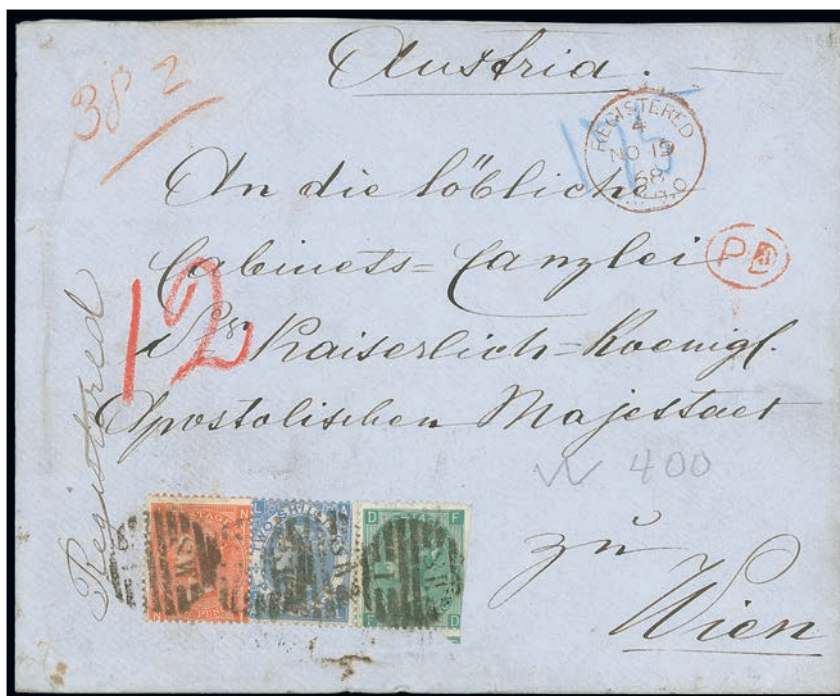 Austria.
38 2
REGISTERED
4
NO 19
68
An die löbliche
Cabinets=Canzlei
PD
12
Sr Kaiserlich=Koenigl.
Apostolischen Majestaet
Registered
W 400
zu
Wien
TWO SHILLINGS
L A
D F
F D
N
N